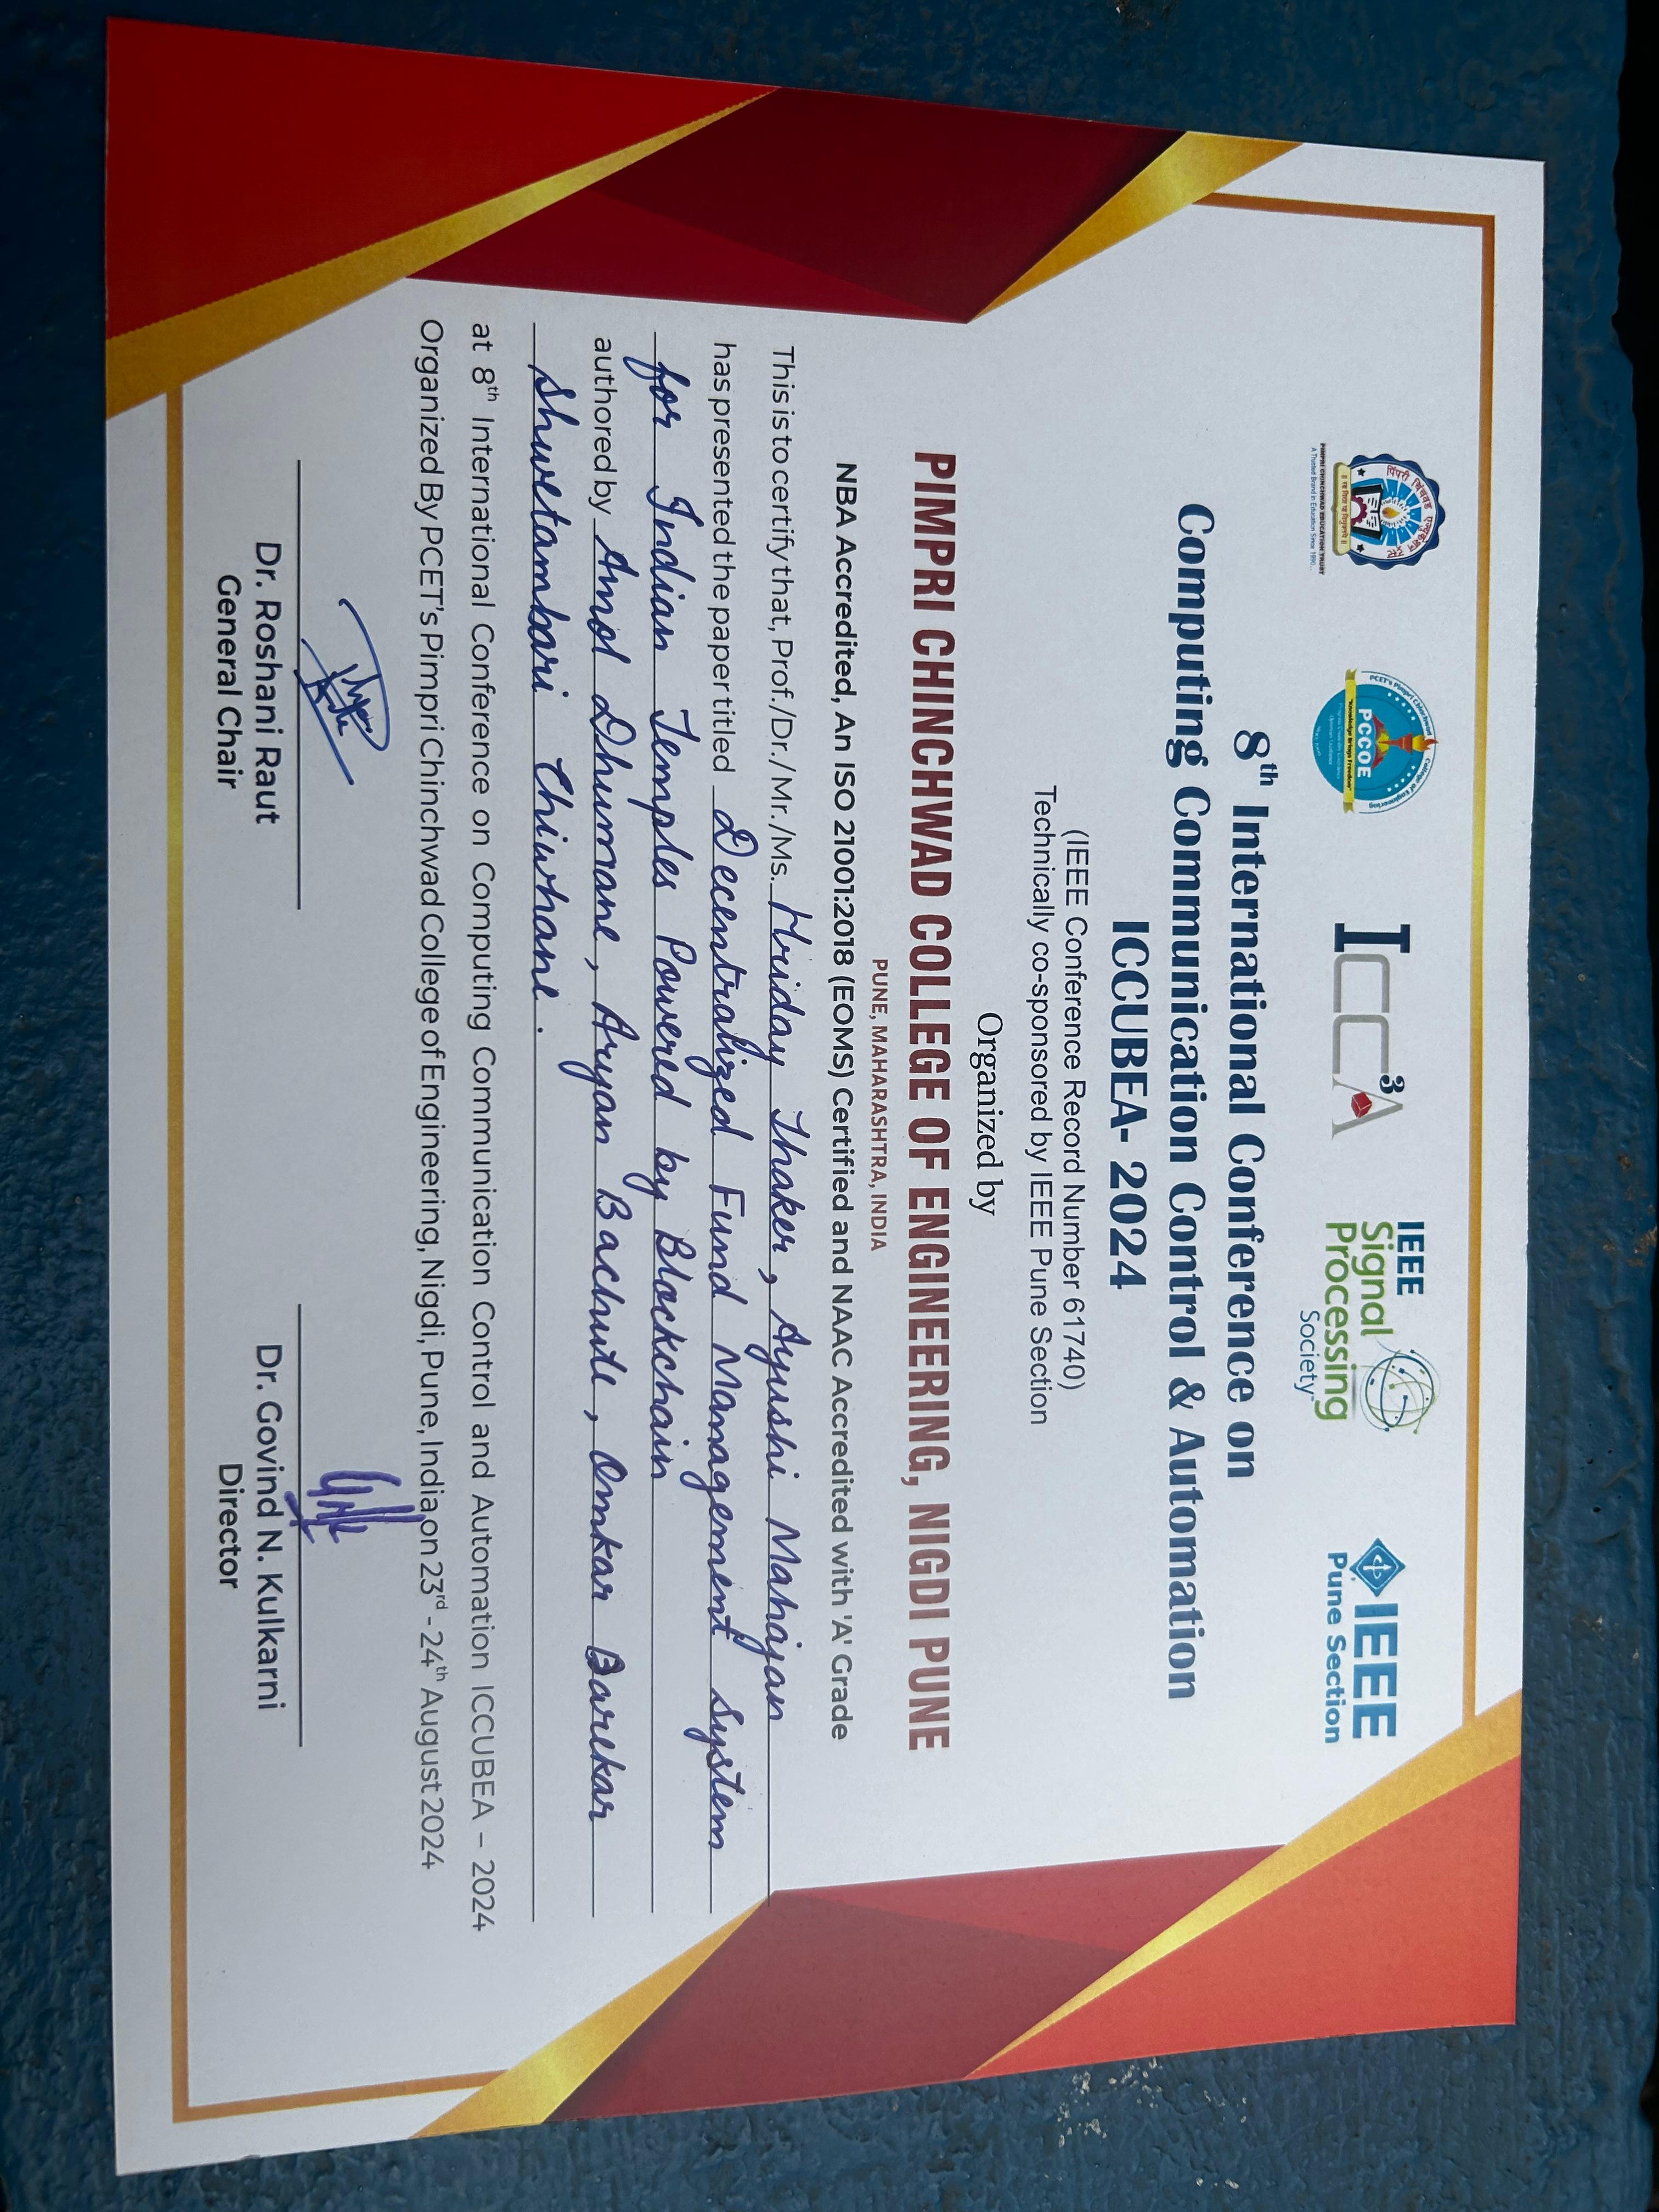 पिंपरी चिंचवड एज्युकेशन ट्रस्ट
PIMPRI CHINCHWAD EDUCATION TRUST
A Trusted Brand in Education Since 1990...
PCET's Pimpri Chinchwad College of Engineering
PCCOE
"Knowledge Brings Freedom"
ICC3A
IEEE
Signal
Processing
Society
IEEE
Pune Section
8th International Conference on
Computing Communication Control & Automation
ICCUBEA- 2024
(IEEE Conference Record Number 61740)
Technically co-sponsored by IEEE Pune Section
Organized by
PIMPRI CHINCHWAD COLLEGE OF ENGINEERING, NIGDI PUNE
PUNE, MAHARASHTRA, INDIA
NBA Accredited, An ISO 21001:2018 (EOMS) Certified and NAAC Accredited with 'A' Grade
This is to certify that, Prof./Dr./Mr./Ms. Hriday Thaker, Ayushi Mahajan
has presented the paper titled Decentralized Fund Management System
for Indian Temples Powered by Blockchain
authored by Amol Dhumane, Aryan Bachute, Omkar Barekar
Shwetambari Chiwhane.
at 8th International Conference on Computing Communication Control and Automation ICCUBEA – 2024
Organized By PCET's Pimpri Chinchwad College of Engineering, Nigdi, Pune, India,on 23rd - 24th August 2024
Dr. Roshani Raut
General Chair
Dr. Govind N. Kulkarni
Director